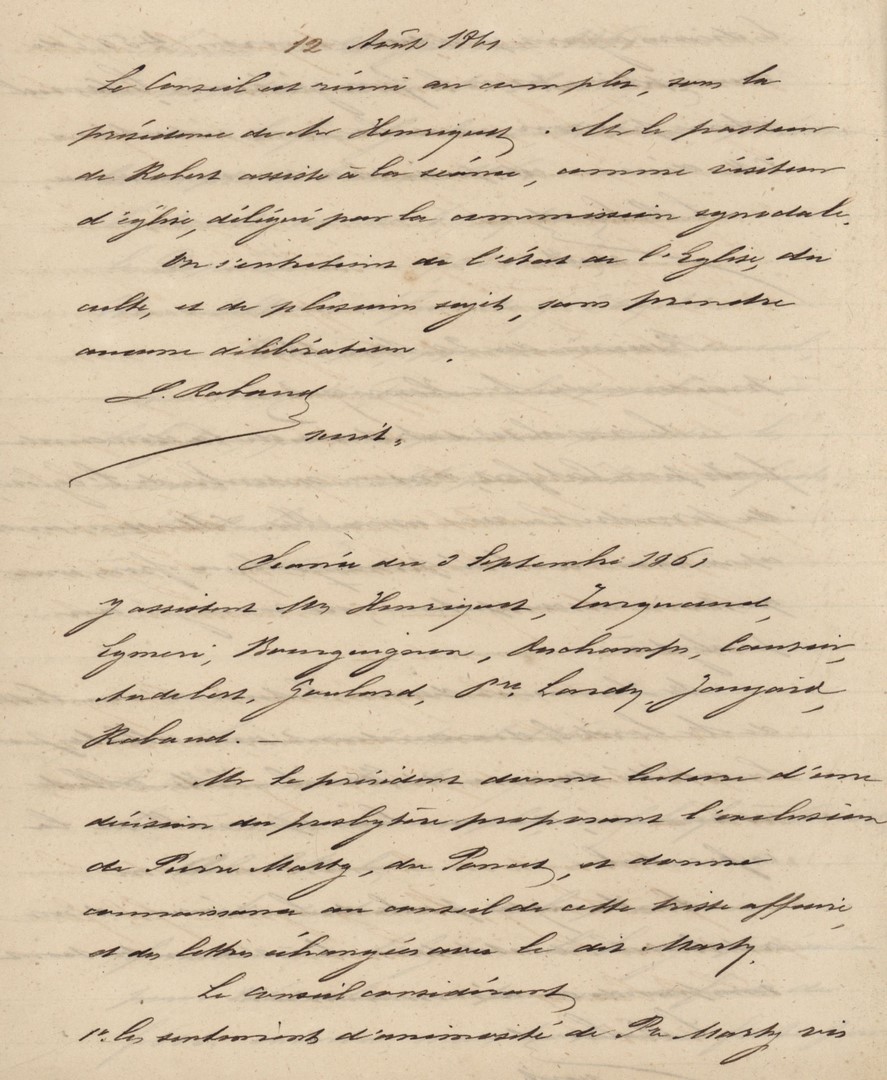 12 Août 1861
Le Conseil est réuni au complet, sous la
présidence de Mr Henriquet. Mr le pasteur
de Robert assiste à la séance, comme visiteur
d'église, délégué par la commission synodale.
On s'entretient de l'état de l'Eglise, du
culte, et de plusieurs sujets, sans prendre
aucune délibération.
L. Rabaud
secrét.
Séance du 3 Septembre 1861
Y assistent Mrs Henriquet, Turquand,
Eymeri, Bourguignon, Deschamps, Causin,
Audebert, Goulard, Pre Lardy, Jougard,
Rabaud. —
Mr le président donne lecture d'une
décision du presbytère proposant l'exclusion
de Pierre Marty, du Ponut, et donne
connaissance au conseil de cette triste affaire,
et des lettres échangées avec le dit Marty.
Le Conseil considérant
1o. les sentiment d'animosité de Pre Marty vis